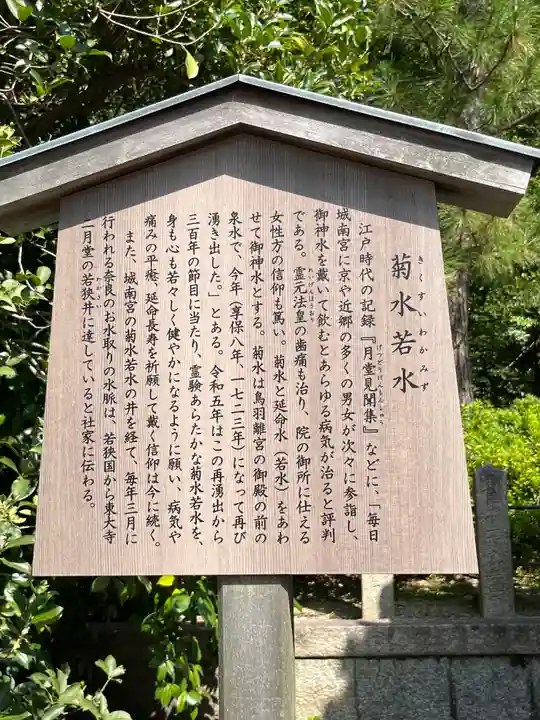 きくすいわかみず
菊水若水
げつどうけんもんしゅう
江戸時代の記録『月堂見聞集』などに、「毎日
城南宮に京や近郷の多くの男女が次々に参詣し、
御神水を戴いて飲むとあらゆる病気が治ると評判
れいげんほうおう
である。霊元法皇の歯痛も治り、院の御所に仕える
女性方の信仰も篤い。菊水と延命水（若水）をあわ
せて御神水とする。菊水は鳥羽離宮の御殿の前の
泉水で、今年（享保八年、一七二三年）になって再び
湧き出した。」とある。令和五年はこの再湧出から
三百年の節目に当たり、霊験あらたかな菊水若水を、
身も心も若々しく健やかになるように願い、病気や
痛みの平癒、延命長寿を祈願して戴く信仰は今に続く。
また、城南宮の菊水若水の井を経て、毎年三月に
行われる奈良のお水取りの水脈は、若狭国から東大寺
二月堂の若狭井に達していると社家に伝わる。